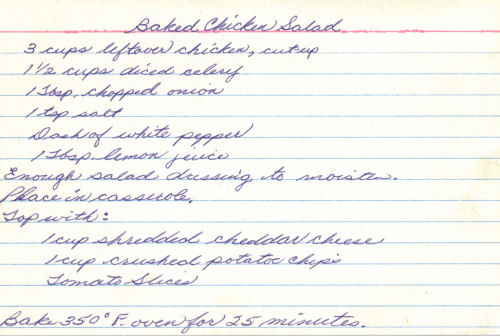 Baked Chicken Salad
3 cups leftover chicken, cut up
1 1/2 cups diced celery
1 Tbsp. chopped onion
1 tsp salt
Dash of white pepper
1 Tbsp. lemon juice
Enough salad dressing to moisten.
Place in casserole.
Top with:
1 cup shredded cheddar cheese
1 cup crushed potatoe chips
Tomato Slices
Bake 350° F. oven for 25 minutes.